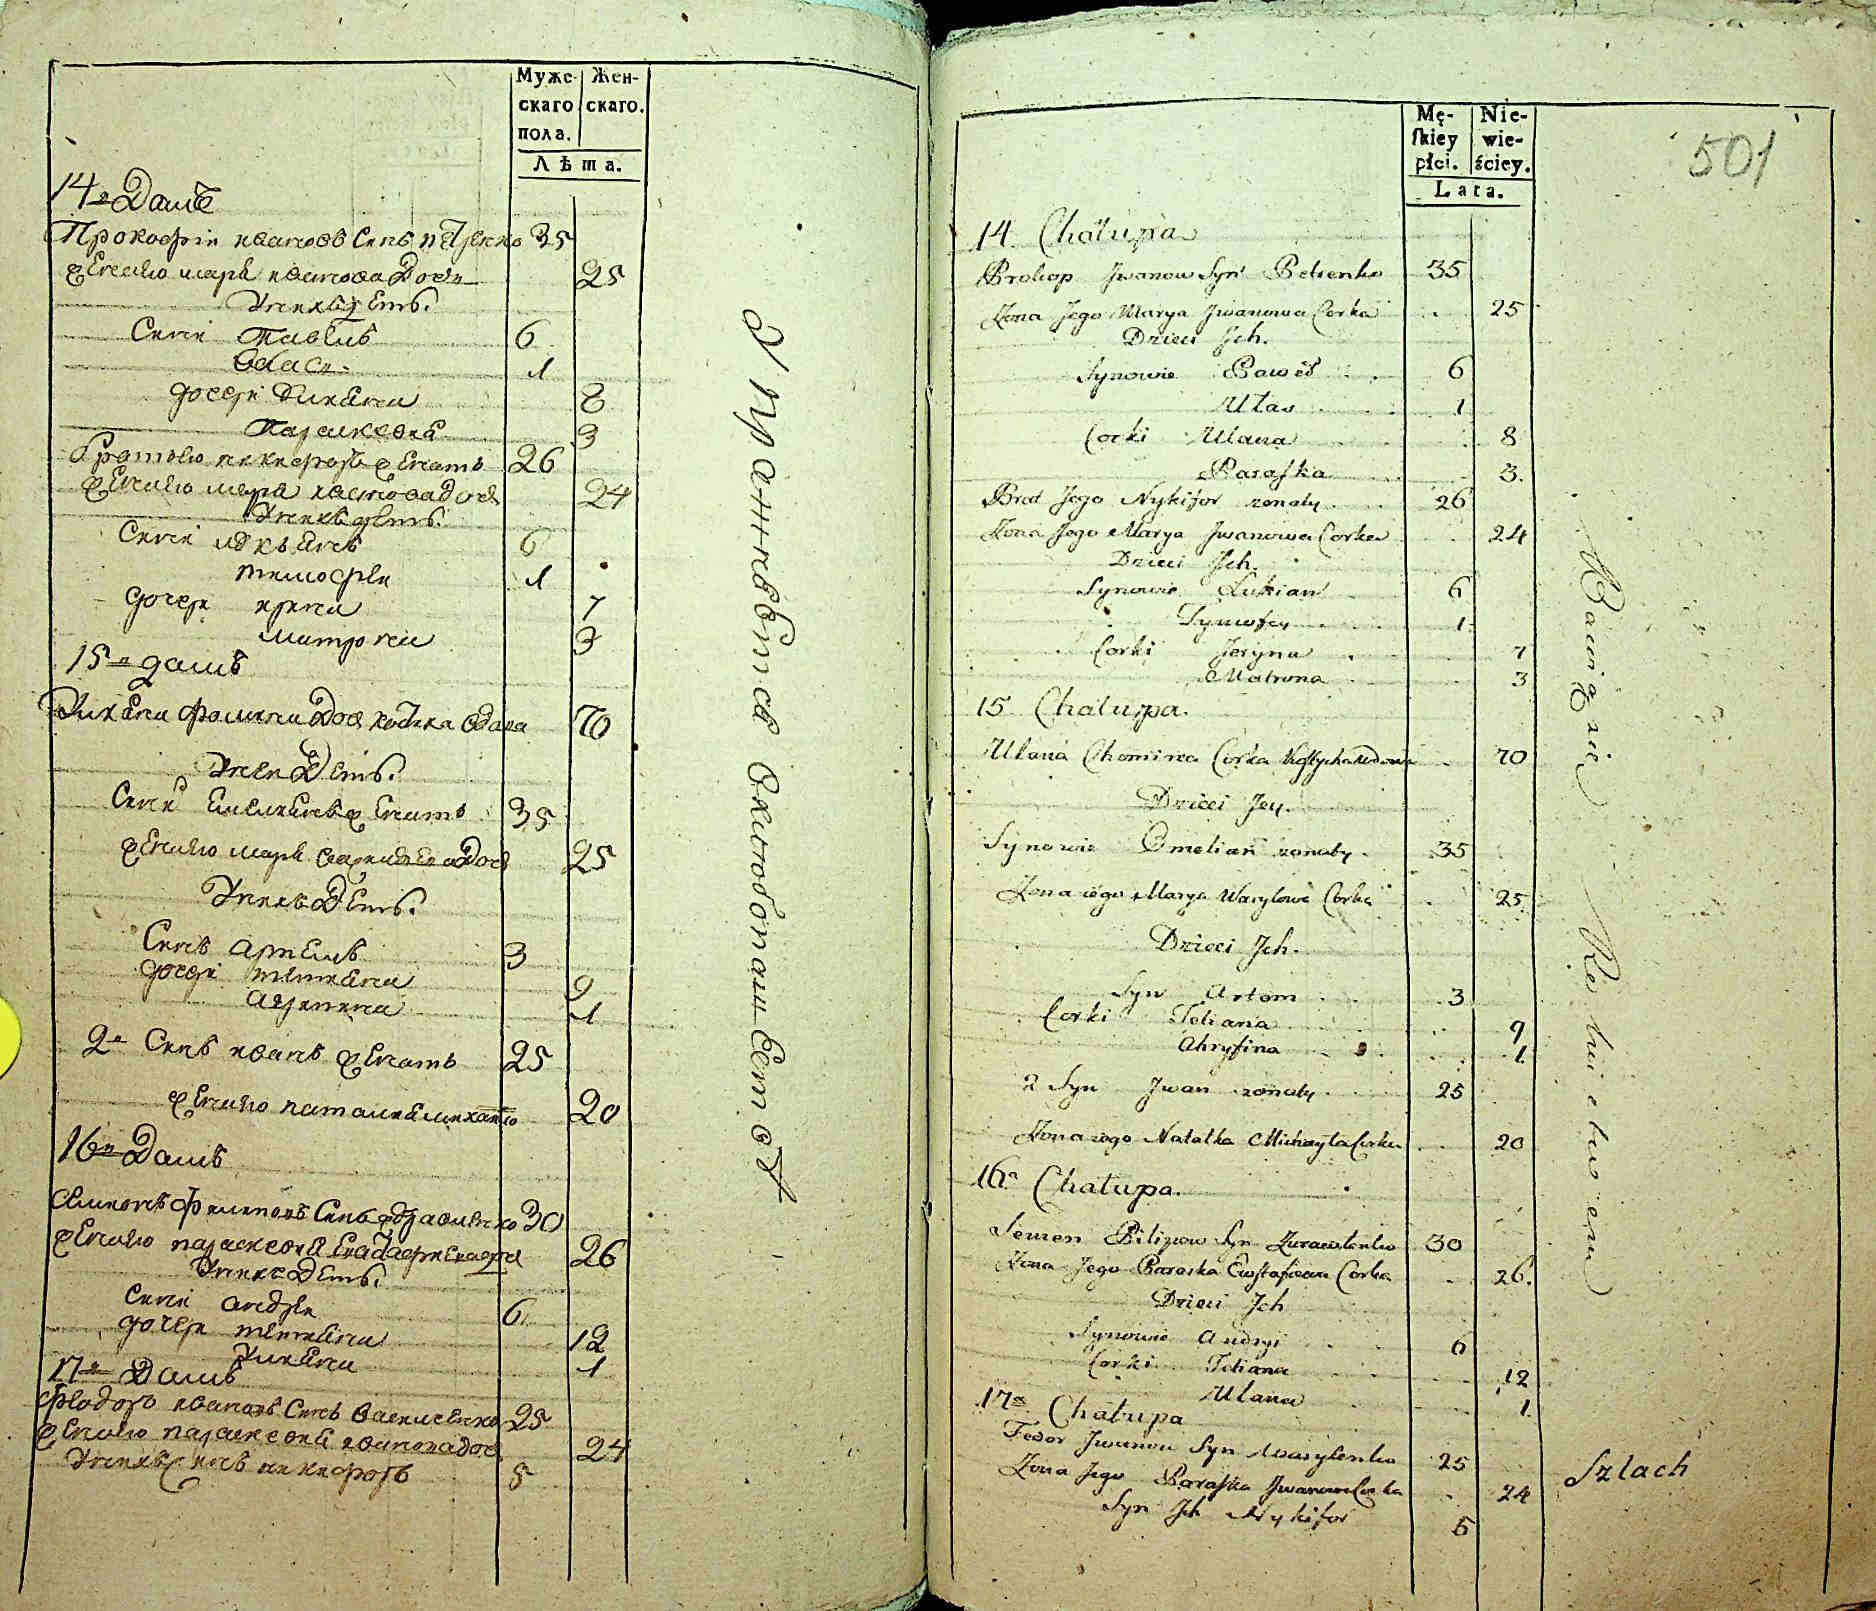 Муже-
скаго
пола.
Жен-
скаго.
Лѣта.
14-й Домъ
Прокофiй Ивановъ Сынъ Петренко 35
Жена Его Марья Иванова Дочь 25
У нихъ Дети.
Сыни Павелъ 6
Влас 1
дочери Улiяна 8
Параскева 3
Братъ Его Никифоръ женатъ 26
Жена Его Марья Иванова доч 24
У нихъ дети.
Сыни Лукьянъ 6
Тимофей 1
дочери Ирина 7
Матрона 3
15-й домъ
Улiяна Фомина Доч вдова 70
У ней Дети.
Сыни Емелiянъ женатъ 35
Жена Его Марья Доч 25
У нихъ Дети.
Сынъ Артемъ 3
дочери Татiяна 9
Агрипина 1
2-й Сынъ Иванъ женатъ 25
Жена Его Наталiя 20
16-й Домъ
Симонъ Филиповъ Сынъ Журавленко 30
Жена Его Параскева 26
У нихъ Дети.
Сыни Андрей 6
дочери Татiяна 12
Улiяна 1
17-й Домъ
Федоръ Ивановъ Сынъ Василенко 25
Жена Его Параскева Иванова доч 24
У нихъ Сынъ Никифоръ 5
501
Mę-
skiey
płci.
Nie-
wie-
ściey.
Lata.
14 Chałupa
Prokop Jwanow Syn Petrenko 35
Zona Jego Marya Jwanowa Corka 25
Dzieci Jch.
Synowie Paweł 6
Ułas 1
Corki Ulana 8
Paraska 3.
Brat Jego Nykifor zonaty 26
Zona Jego Marya Jwanowa Corka 24
Dzieci Jch.
Synowie Łukian 6
Tymofey 1
Corki Jeryna 7
Matrona 3
15 Chałupa.
Ulana Chomina Corka 70
Dzieci Jey.
Synowie Omelian zonaty 35
Zona iego Marya Wasylowa Corka 25
Dzieci Jch.
Syn Artom 3
Corki Tetiana 9
Ahryfina 1
2 Syn Jwan zonaty 25
Zona iego Natalka Michayła Corka 20
16a Chałupa.
Semen Pilipow Syn Zurawlenko 30
Zona Jego Paraska Ewstafiewa Corka 26.
Dzieci Jch
Synowie Andryi 6
Corki Tetiana 12
Ulana 1
17a Chałupa
Fedor Jwanow Syn Wasylenko 25
Zona Jego Paraska Jwanowa Corka 24
Syn Jch Nykifor 5
Szlach